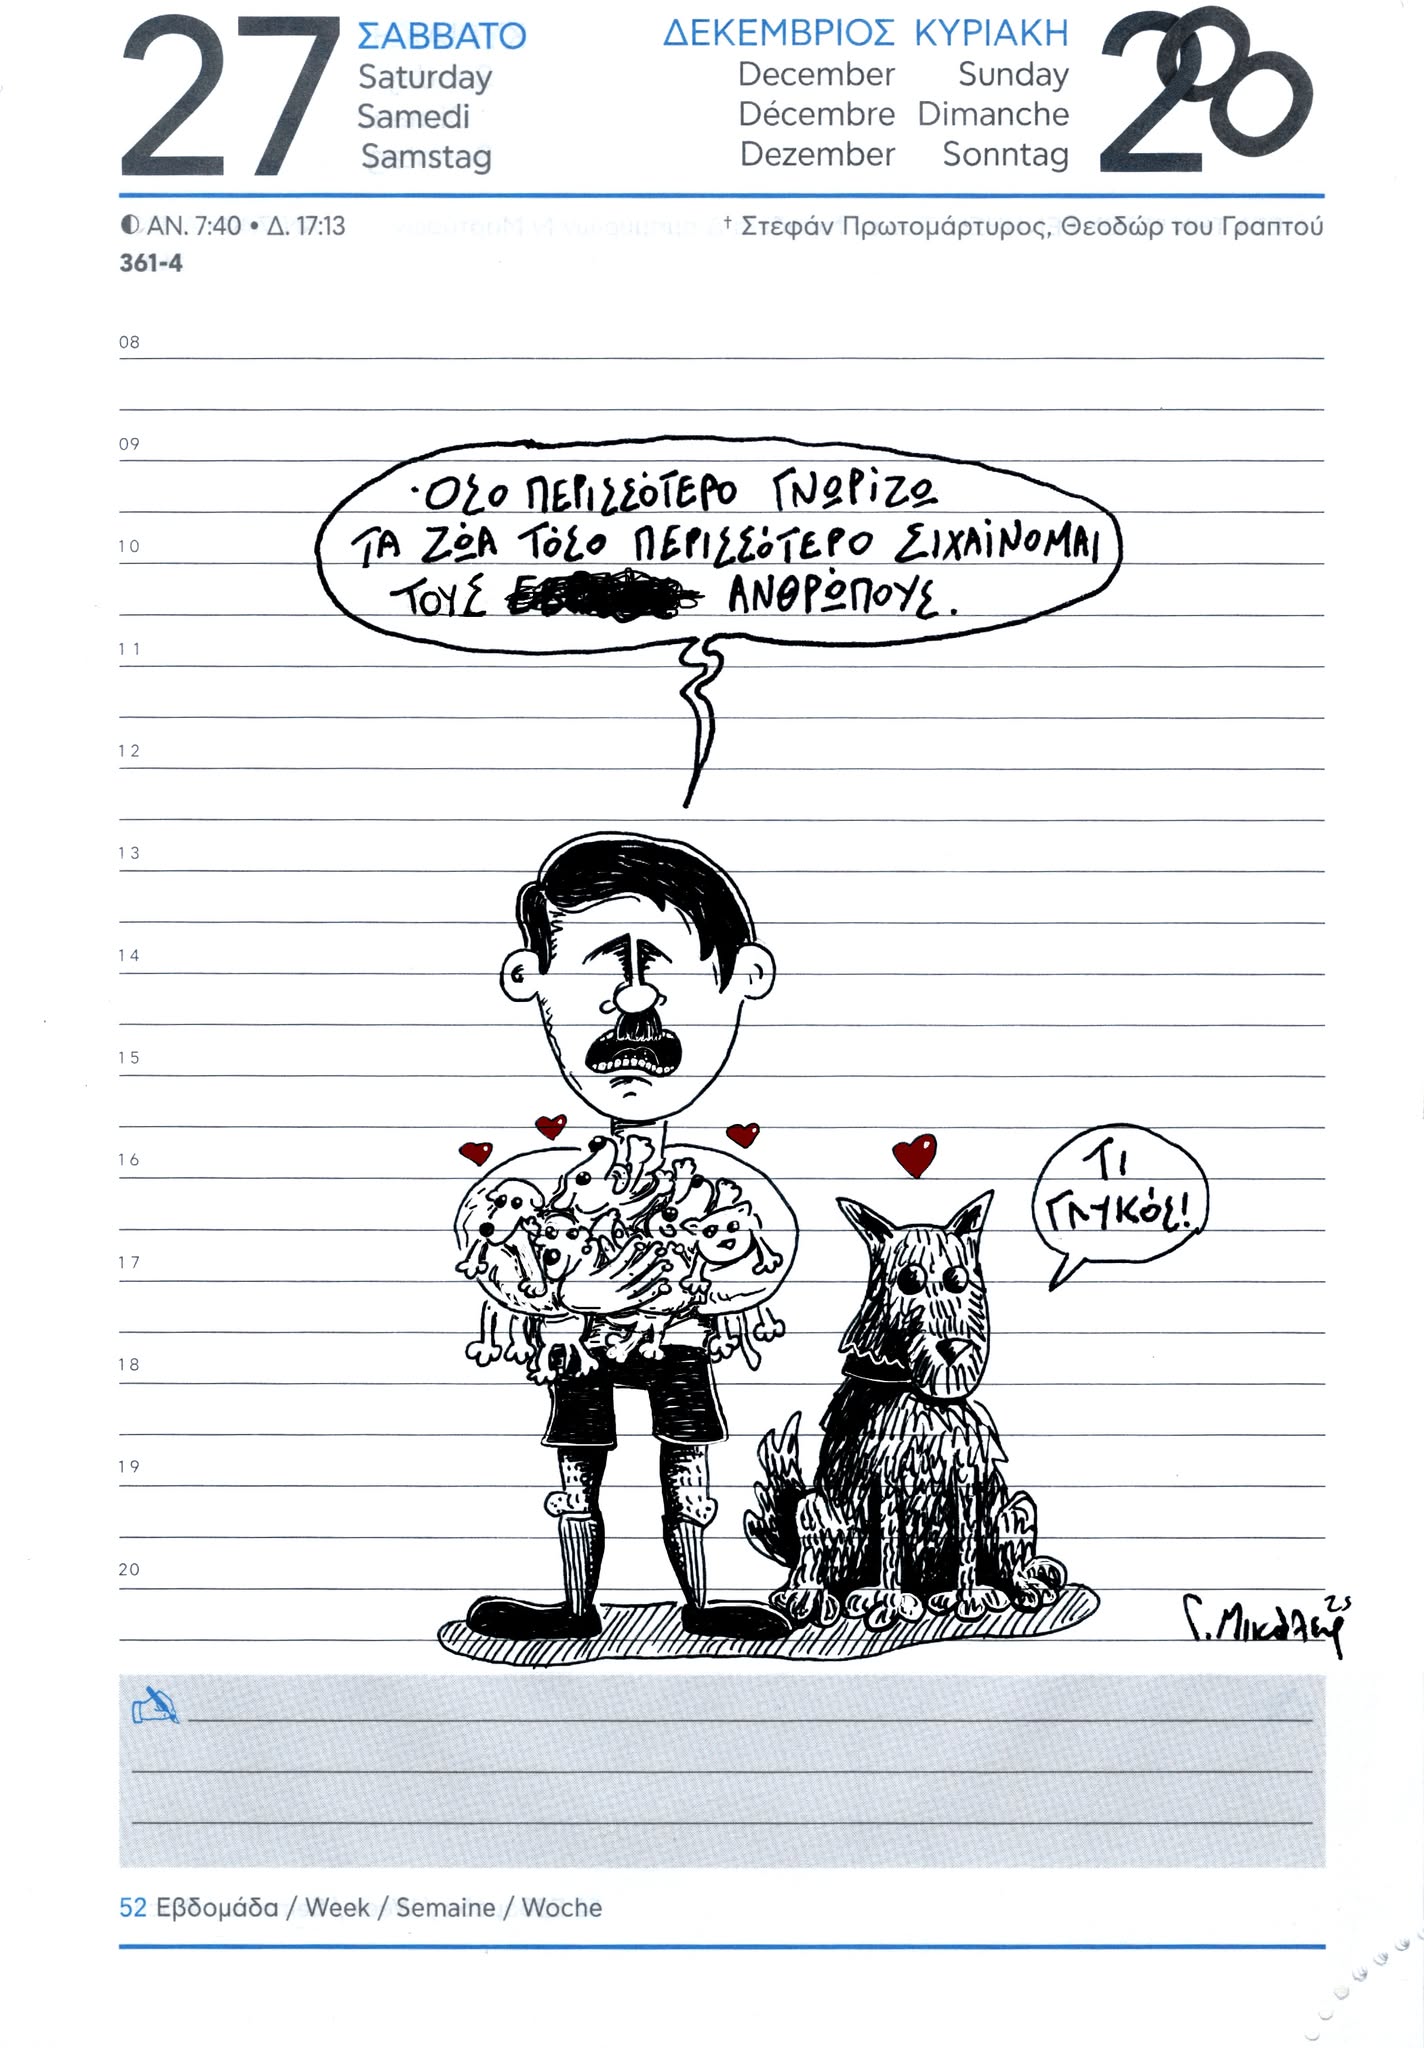 27 ΣΑΒΒΑΤΟ ΔΕΚΕΜΒΡΙΟΣ ΚΥΡΙΑΚΗ
Saturday December Sunday
Samedi Décembre Dimanche
Samstag Dezember Sonntag
ΑΝ. 7:40 • Δ. 17:13 † Στεφάν Πρωτομάρτυρος, Θεοδώρ του Γραπτού
361-4
08
09
·ΟΣΟ ΠΕΡΙΣΣΌΤΕΡΟ ΓΝΩΡΊΖΩ
10
ΤΑ ΖΏΑ ΤΌΣΟ ΠΕΡΙΣΣΌΤΕΡΟ ΣΙΧΑΊΝΟΜΑΙ
ΤΟΥΣ ΑΝΘΡΏΠΟΥΣ.
11
12
13
14
15
16
ΤΙ
ΓΛΥΚΌΣ!
17
18
19
20
Γ. Μικάλεφ 25
52 Εβδομάδα / Week / Semaine / Woche